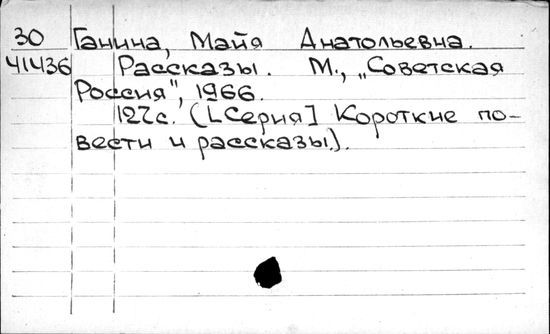 30 Ганина, Майя Анатольевна.
41436 Рассказы. М., „Советская
Россия", 1966.
127с. ([Серия] Короткие по-
вести и рассказы).